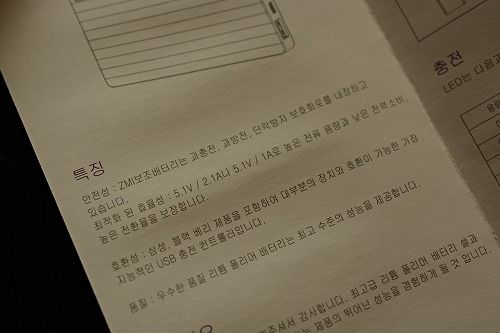 특징
안전성 : ZMI보조배터리는 과충전, 과방전, 단락방지 보호회로를 내장하고
있습니다.
최적화 된 효율성 : 5.1V / 2.1A나 5.1V / 1A로 높은 전류 용량과 낮은 전력소비,
높은 전환율을 보장합니다.
호환성 : 삼성, 블랙 베리 제품을 포함하여 대부분의 장치와 호환이 가능한 가장
지능적인 USB 충전 컨트롤러입니다.
품질 : 우수한 품질 리튬 폴리머 배터리는 최고 수준의 성능을 제공합니다.
주셔서 감사합니다. 최고급 리튬 폴리머 배터리 셀과
는 제품의 뛰어난 성능을 경험하게 될 것 입니다.
충전
LED는 다음과